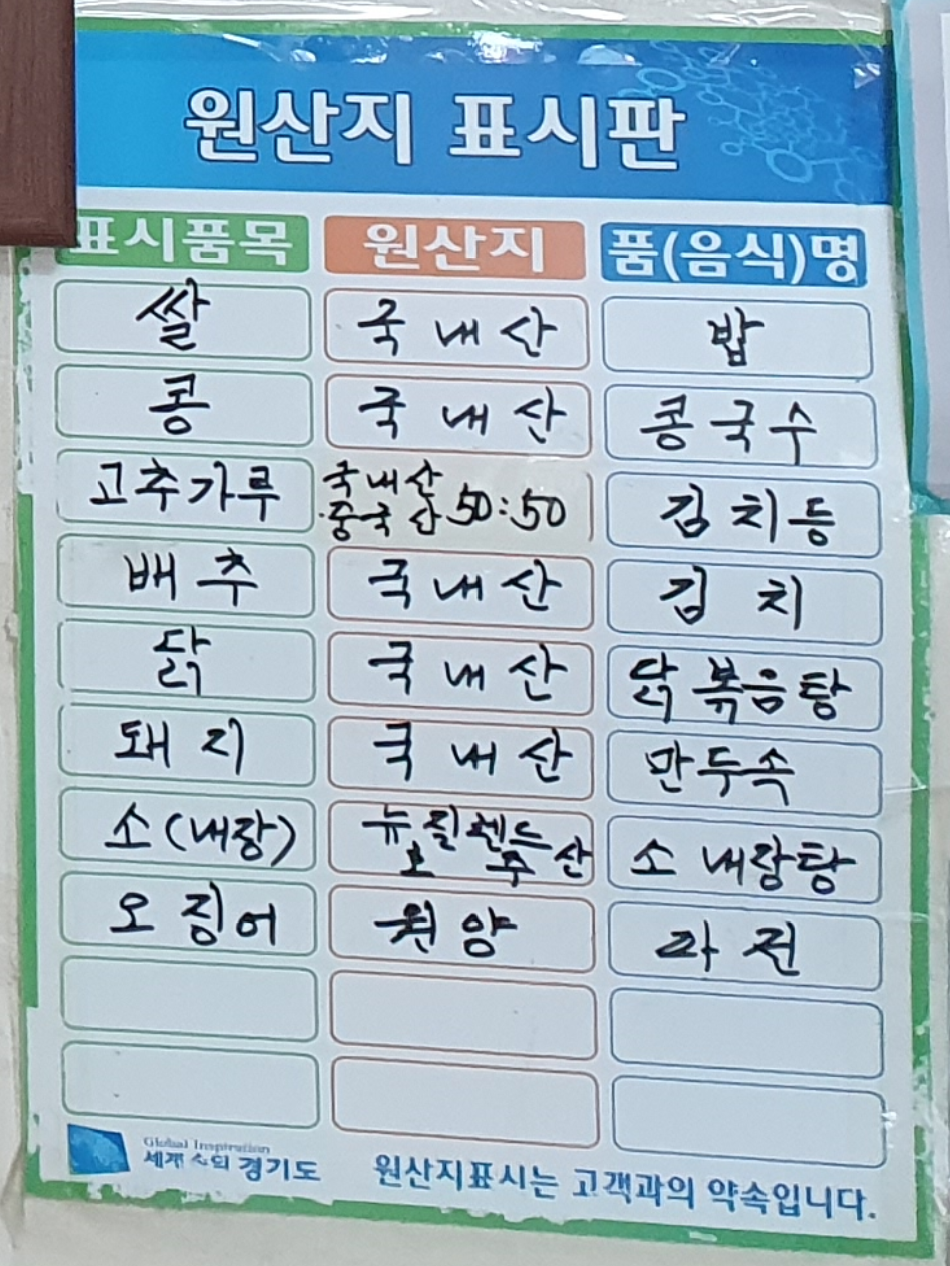 원산지 표시판
표시품목 원산지 품(음식)명
쌀 국내산 밥
콩 국내산 콩국수
고추가루 국내산 중국산 50:50 김치등
배추 국내산 김치
닭 국내산 닭볶음탕
돼지 국내산 만두속
소(내장) 뉴질랜드 호주산 소내장탕
오징어 원양 파전
Global Inspiration
세계 속의 경기도
원산지표시는 고객과의 약속입니다.